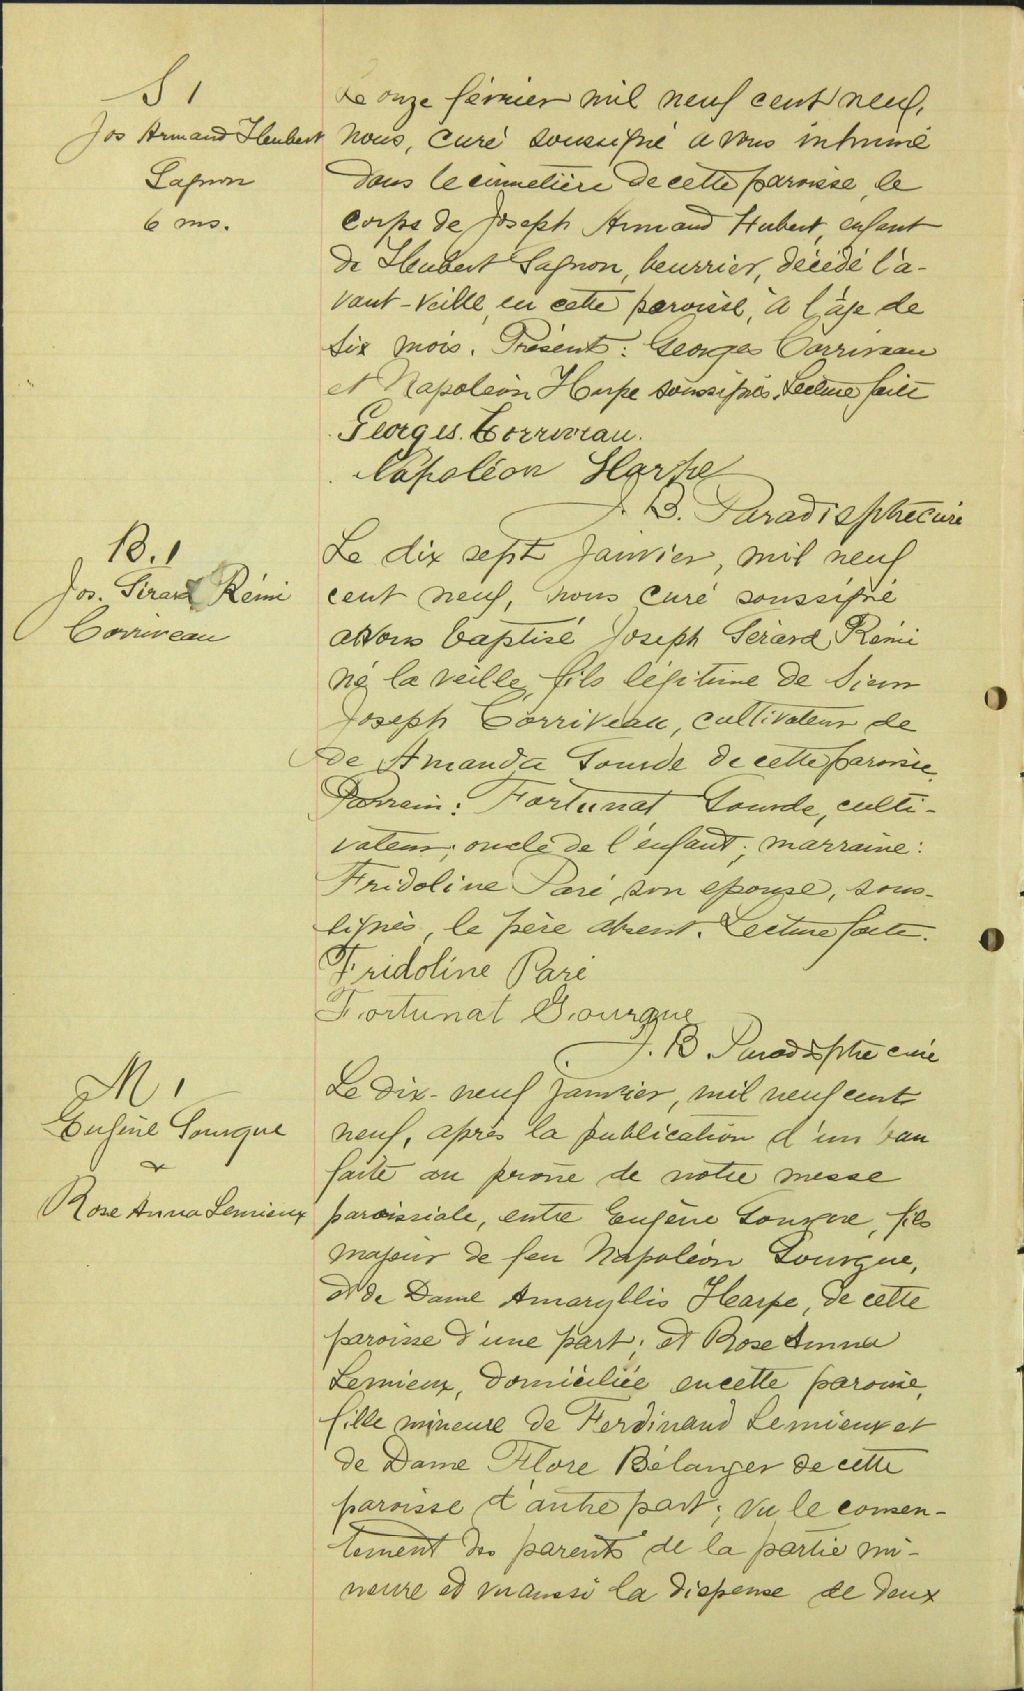 S 1
Jos Armand Heubert
Gagnon
6 ms.
Le onze février mil neuf cent neuf,
nous, curé soussigné avons inhumé
dans le cimetière de cette paroisse, le
corps de Joseph Armand Hubert, enfant
de Heubert Gagnon, beurrier, décédé l'a-
vant-veille, en cette paroisse, à l'âge de
six mois. Présents: Georges Corriveau
et Napoléon Harpe soussignés. Lecture faite
Georges Corriveau.
Napoléon Harpe
J. B. Paradis ptre curé
B. 1
Jos. Gérard Rémi
Corriveau
Le dix sept janvier, mil neuf
cent neuf, nous curé soussigné
avons baptisé Joseph Gérard Rémi
né la veille, fils légitime de Sieur
Joseph Corriveau, cultivateur de
de Amanda Gourde de cette paroisse.
Parrain: Fortunat Gourde, culti-
vateur, oncle de l'enfant; marraine:
Fridoline Paré, son epouse, sous-
signés, le père absent. Lecture faite.
Fridoline Paré
Fortunat Gourgue
J. B. Paradis ptre curé
M 1
Eugène Gourgue
&
Rose Anna Lemieux
Le dix-neuf janvier, mil neuf cent
neuf, après la publication d'un ban
faite au prône de notre messe
paroissiale, entre Eugène Gourgue, fils
majeur de feu Napoléon Gourgue,
et de Dame Amaryllis Harpe, de cette
paroisse d'une part; et Rose Anna
Lemieux, domiciliée en cette paroisse,
fille mineure de Ferdinand Lemieux et
de Dame Flore Bélanger de cette
paroisse d'autre part; vu le consen-
tement des parents de la partie mi-
neure et vu aussi la dispense de deux